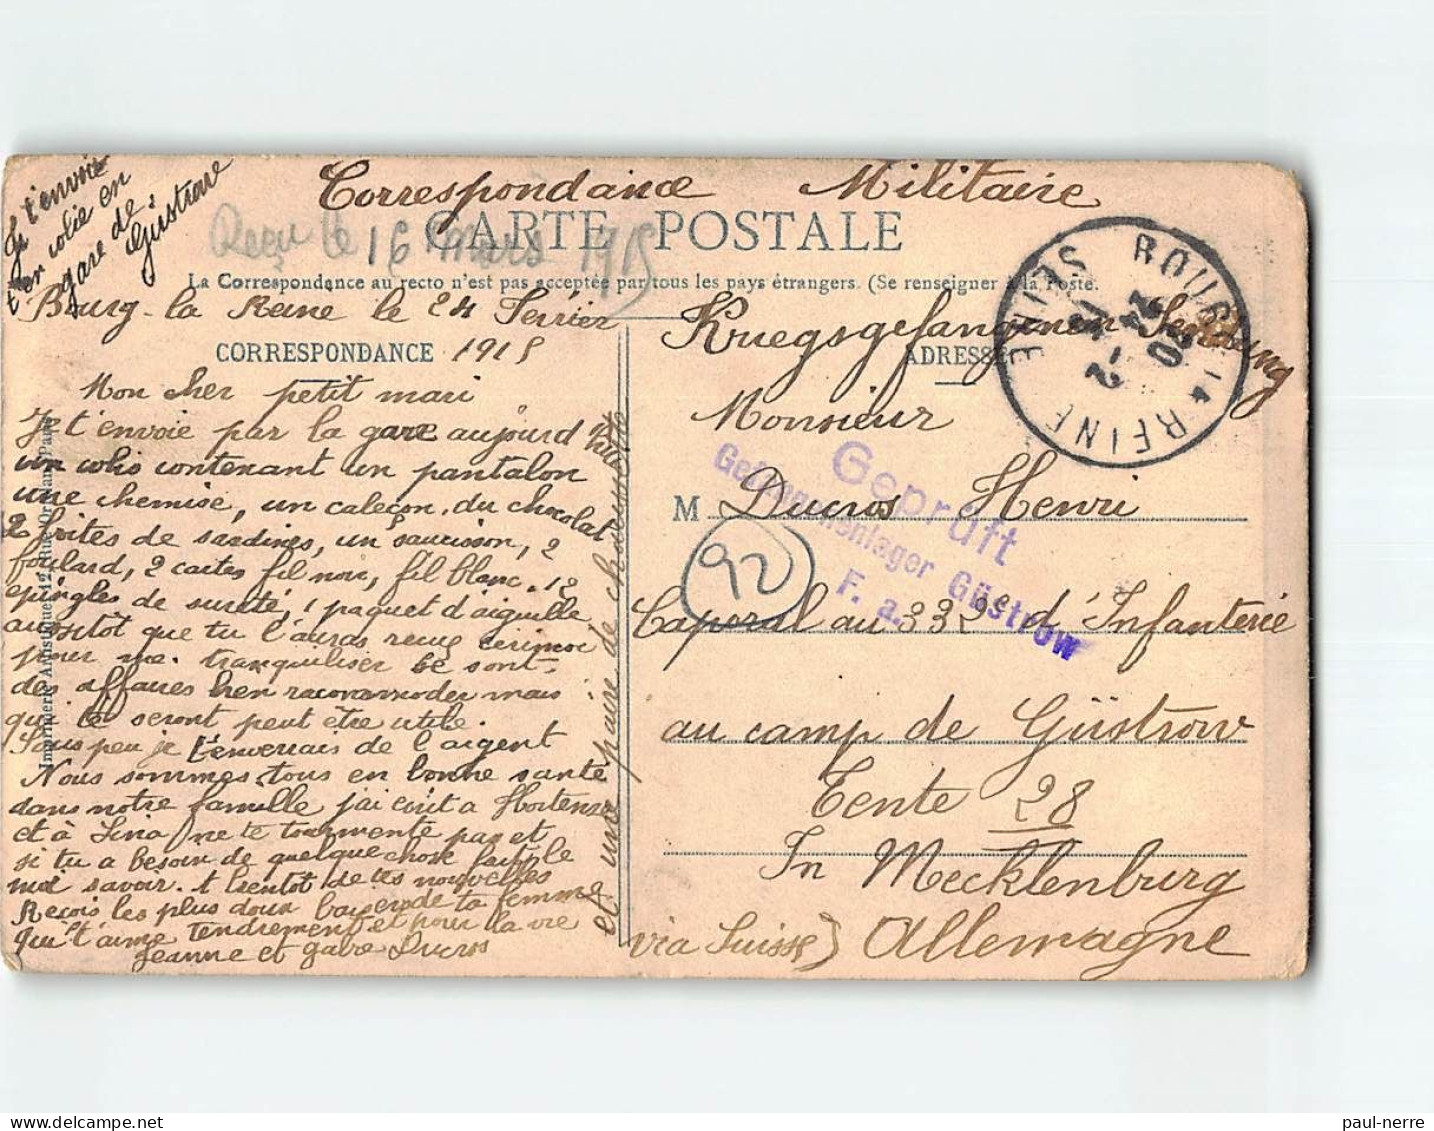 Je t'envoie
ton colie en
gare de:
Güstrow
Correspondance Militaire
CARTE POSTALE
Reçu le 16 mars 1915
La Correspondance au recto n'est pas acceptée par tous les pays étrangers. (Se renseigner à la Poste.
Bourg-la Reine le 24 Février
CORRESPONDANCE 1915
Mon cher petit mari
Je t'envoie par la gare aujourd'hui
un colis contenant un pantalon
une chemise, un caleçon, du chocolat
2 boites de sardines, un saucisson, 2
foulard, 2 cartes fil noir, fil blanc. 12
epingles de sureté, 1 paquet d'aiguille
aussitot que tu l'auras recue
pour me tranquiliser ce sont
des affaires bien racommoder mais
qui te seront peut être utile.
Sous peu je t'enverrais de l'argent
Nous sommes tous en bonne santé
dans notre famille j'ai écrit a Hortense
et à ne te tourmente pas et
si tu a besoin de quelque chose le
moi savoir. A bientot de tes nouvelles
Recois les plus doux baisers de ta femme
qui t'aime tendrement et pour la vie
Jeanne et Ducros
et une paire de chaussette
Imprimerie Artistique, 12, Rue
Kriegsgefangenen Sendung
ADRESSE
Monsieur
M Ducros Henri
Caporal au 332e d'Infanterie
au camp de Güstrow
Tente 28
In Mecklenburg
via Suisse) Allemagne
BOURG-LA-REINE SEINE
Geprüft
Gefangenenlager Güstrow
F. a.
92
paul-nerre